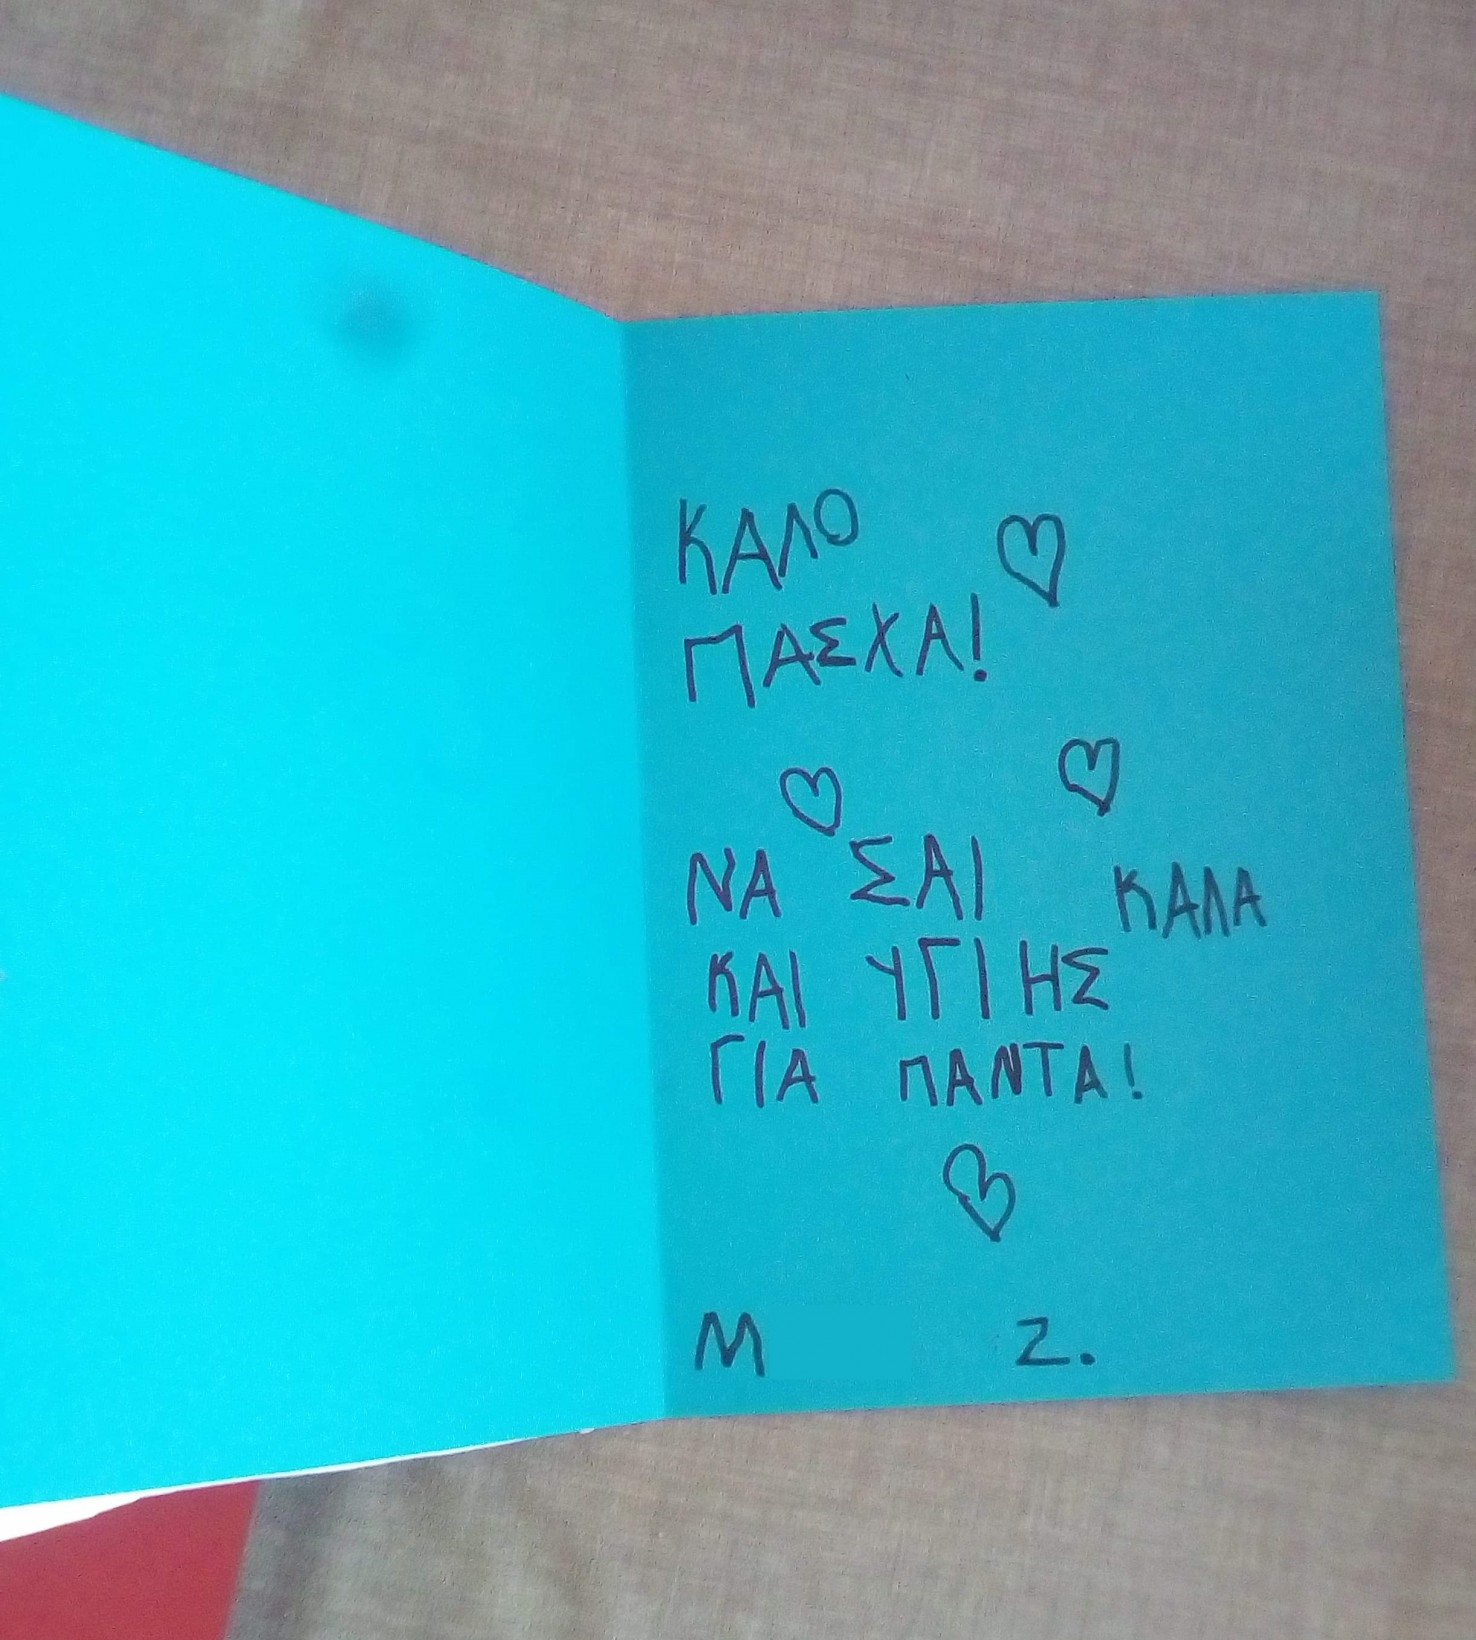 ΚΑΛΟ
ΠΑΣΧΑ!
ΝΑ ΣΑΙ ΚΑΛΑ
ΚΑΙ ΥΓΙΗΣ
ΓΙΑ ΠΑΝΤΑ!
Μ Ζ.